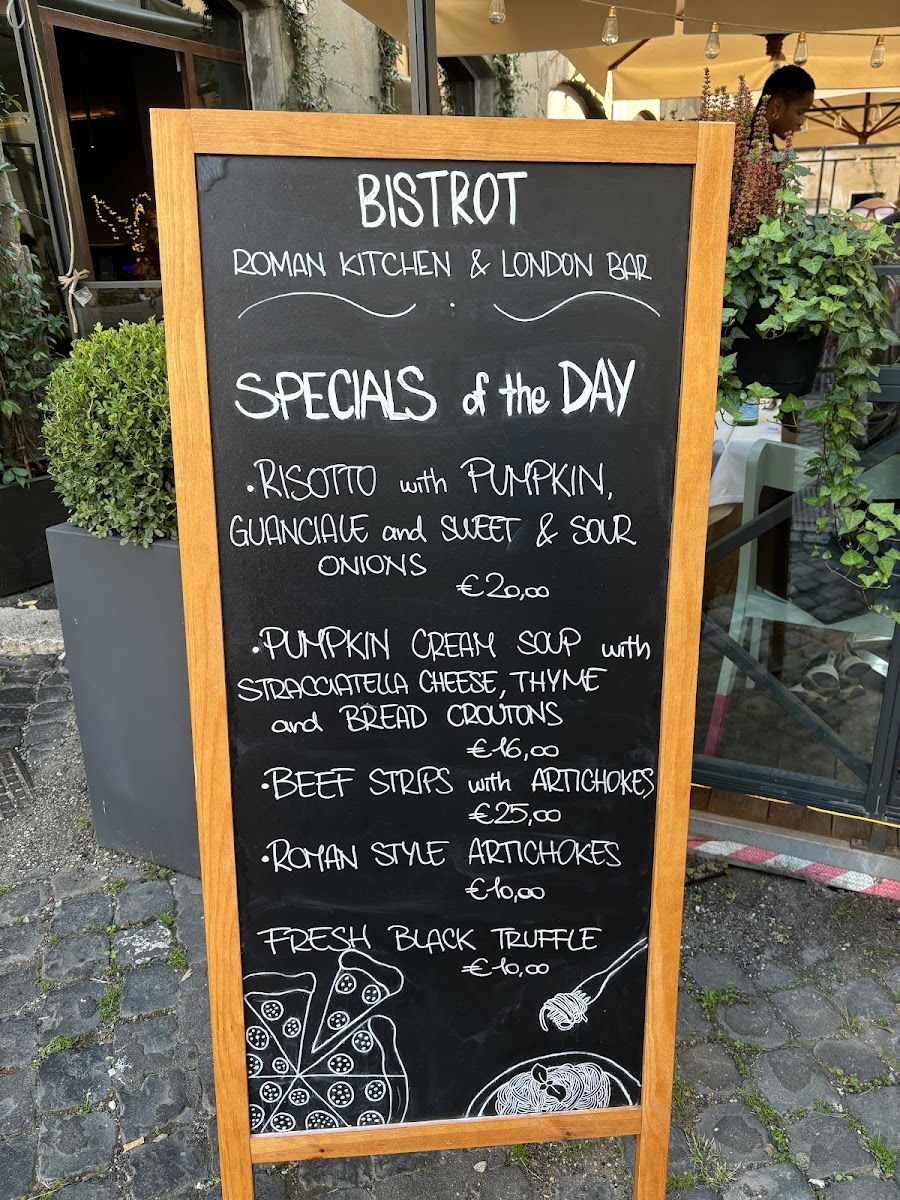 BISTROT
ROMAN KITCHEN & LONDON BAR
SPECIALS of the DAY
• RISOTTO with PUMPKIN,
GUANCIALE and SWEET & SOUR
ONIONS
€20,00
• PUMPKIN CREAM SOUP with
STRACCIATELLA CHEESE, THYME
and BREAD CROUTONS
€16,00
• BEEF STRIPS with ARTICHOKES
€25,00
• ROMAN STYLE ARTICHOKES
€10,00
FRESH BLACK TRUFFLE
€10,00